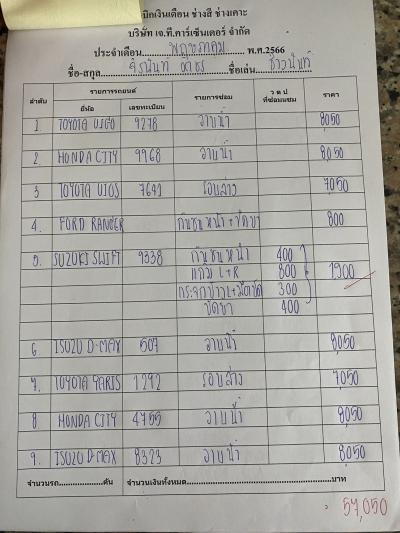 เบิกเงินเดือน ช่างสี ช่างเคาะ
บริษัท เจ.ที.คาร์เซ็นเตอร์ จำกัด
ประจำเดือน พฤษภาคม พ.ศ.2566
ชื่อ-สกุล ชื่อเล่น
ลำดับ รายการรถยนต์ รายการซ่อม ว ด ป ที่ซ่อมแซม ราคา
ยี่ห้อ เลขทะเบียน
1 TOYOTA VIGO 9278 อาบน้ำ 8,050
2 HONDA CITY 9968 อาบน้ำ 8,050
3 TOYOTA VIOS 7641 รอบล่าง 7,050
4. FORD RANGER กันชนหน้า+ขัดยา 800
5. SUZUKI SWIFT 9338 กันชนหน้า 400
แก้ม L+R 800 1,900
300
ขัดยา 400
6 ISUZU D-MAX 507 อาบน้ำ 8,050
7. TOYOTA YARIS 1292 รอบล่าง 7,050
8 HONDA CITY 4755 อาบน้ำ 8,050
9. ISUZU D-MAX 8323 อาบน้ำ 8,050
จำนวนรถ คัน จำนวนเงินทั้งหมด บาท
57,050